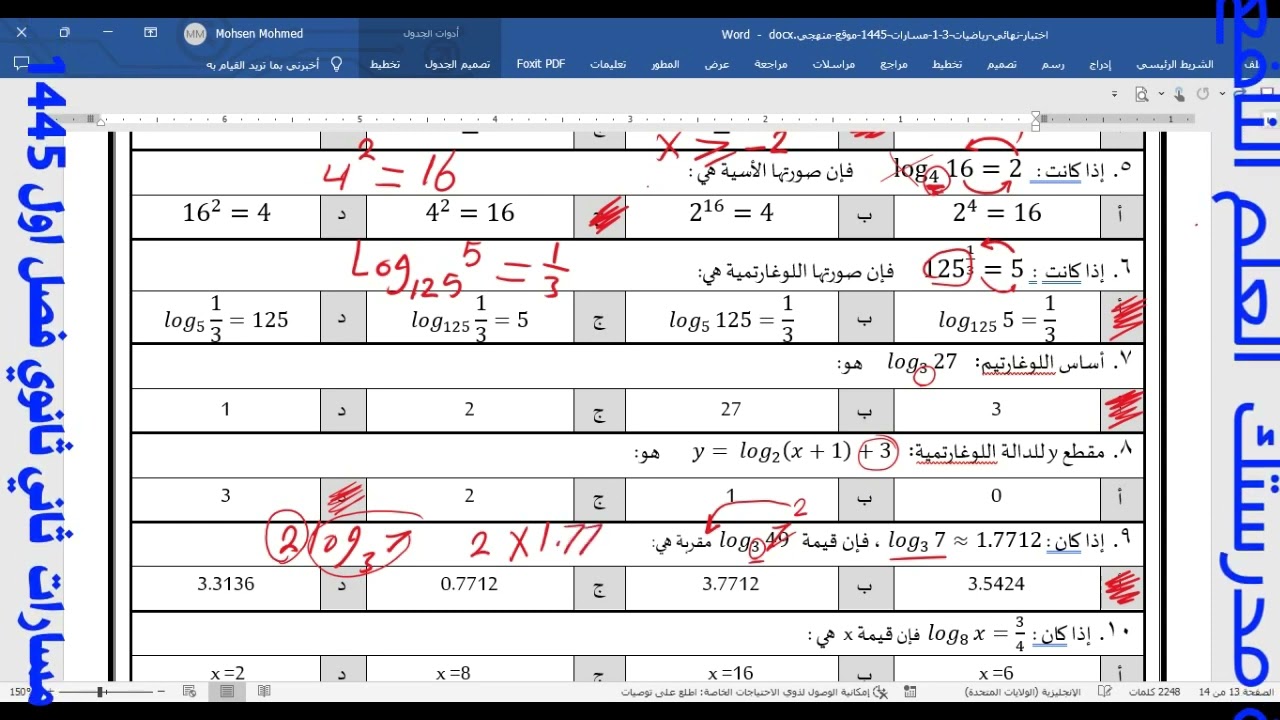 اختبار-نهائي-رياضيات-3-1-مسارات-1445-موقع-منهجي.docx - Word
أدوات الجدول
Mohsen Mohmed
MM
ملف الشريط الرئيسي إدراج رسم تصميم تخطيط مراجع مراسلات مراجعة عرض المطور تعليمات Foxit PDF تصميم الجدول تخطيط أخبرني بما تريد القيام به
1 1 2 3 4 5 6
x ≥ -2
٥. إذا كانت : log₄ 16 = 2 فإن صورتها الأسية هي :
4² = 16
أ 2⁴ = 16 ب 2¹⁶ = 4 4² = 16 د 16² = 4
٦. إذا كانت : 125^(1/3) = 5 فإن صورتها اللوغارتمية هي:
Log₁₂₅ 5 = 1/3
log₁₂₅ 5 = 1/3 ب log₅ 125 = 1/3 ج log₁₂₅ 1/3 = 5 د log₅ 1/3 = 125
٧. أساس اللوغارتيم: log₃ 27 هو:
3 ب 27 ج 2 د 1
٨. مقطع y للدالة اللوغارتمية: y = log₂(x + 1) + 3 هو:
أ 0 ب 1 ج 2 3
٩. إذا كان : log₃ 7 ≈ 1.7712 ، فإن قيمة log₃ 49 مقربة هي:
7²
2 × 1.77
2 log₃ 7
3.5424 ب 3.7712 ج 0.7712 د 3.3136
١٠. إذا كان : log₈ x = 3/4 فإن قيمة x هي :
أ x =6 ب x =16 ج x =8 د x =2
الصفحة 13 من 14 2248 كلمات الإنجليزية (الولايات المتحدة) إمكانية الوصول لذوي الاحتياجات الخاصة: اطلع على توصيات
150%
مدرستك العلم النافع
1445 فصل اول ثاني ثانوي مسارات